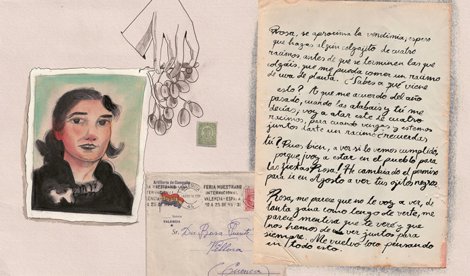 Rosa, se aproxima la vendimia, espero
que hagas algún colgajito de cuatro
racimos, antes de que se terminen los que
colgáis, que me pueda comer un racimo
de uva de planta. ¿Sabes a qué viene
esto? A que me acuerdo del año
pasado, cuando las atabais y tú me
decías, voy a atar este de cuatro
racimos, para cuando vengas y estemos
juntos darte un racimo ¿recuerdas
tú? Pues bien, a ver si lo vemos cumplido,
porque voy a estar en el pueblo para
las fiestas Rosa! He cambiado el permiso
para ir en Agosto a ver tus ojitos negros.
Rosa, me parece que no te voy a ver, de
tanta gana como tengo de verte, me
parece mentira que te veré y que
nos hemos de ver juntos para
siempre. Me vuelvo loco pensando
en todo esto.
FERIA MUESTRARIO
INTERNACIONAL
VALENCIA-ESPAÑA
10 A 25
VALENCIA
Sr. Dña Rosa
Villora
Cuenca